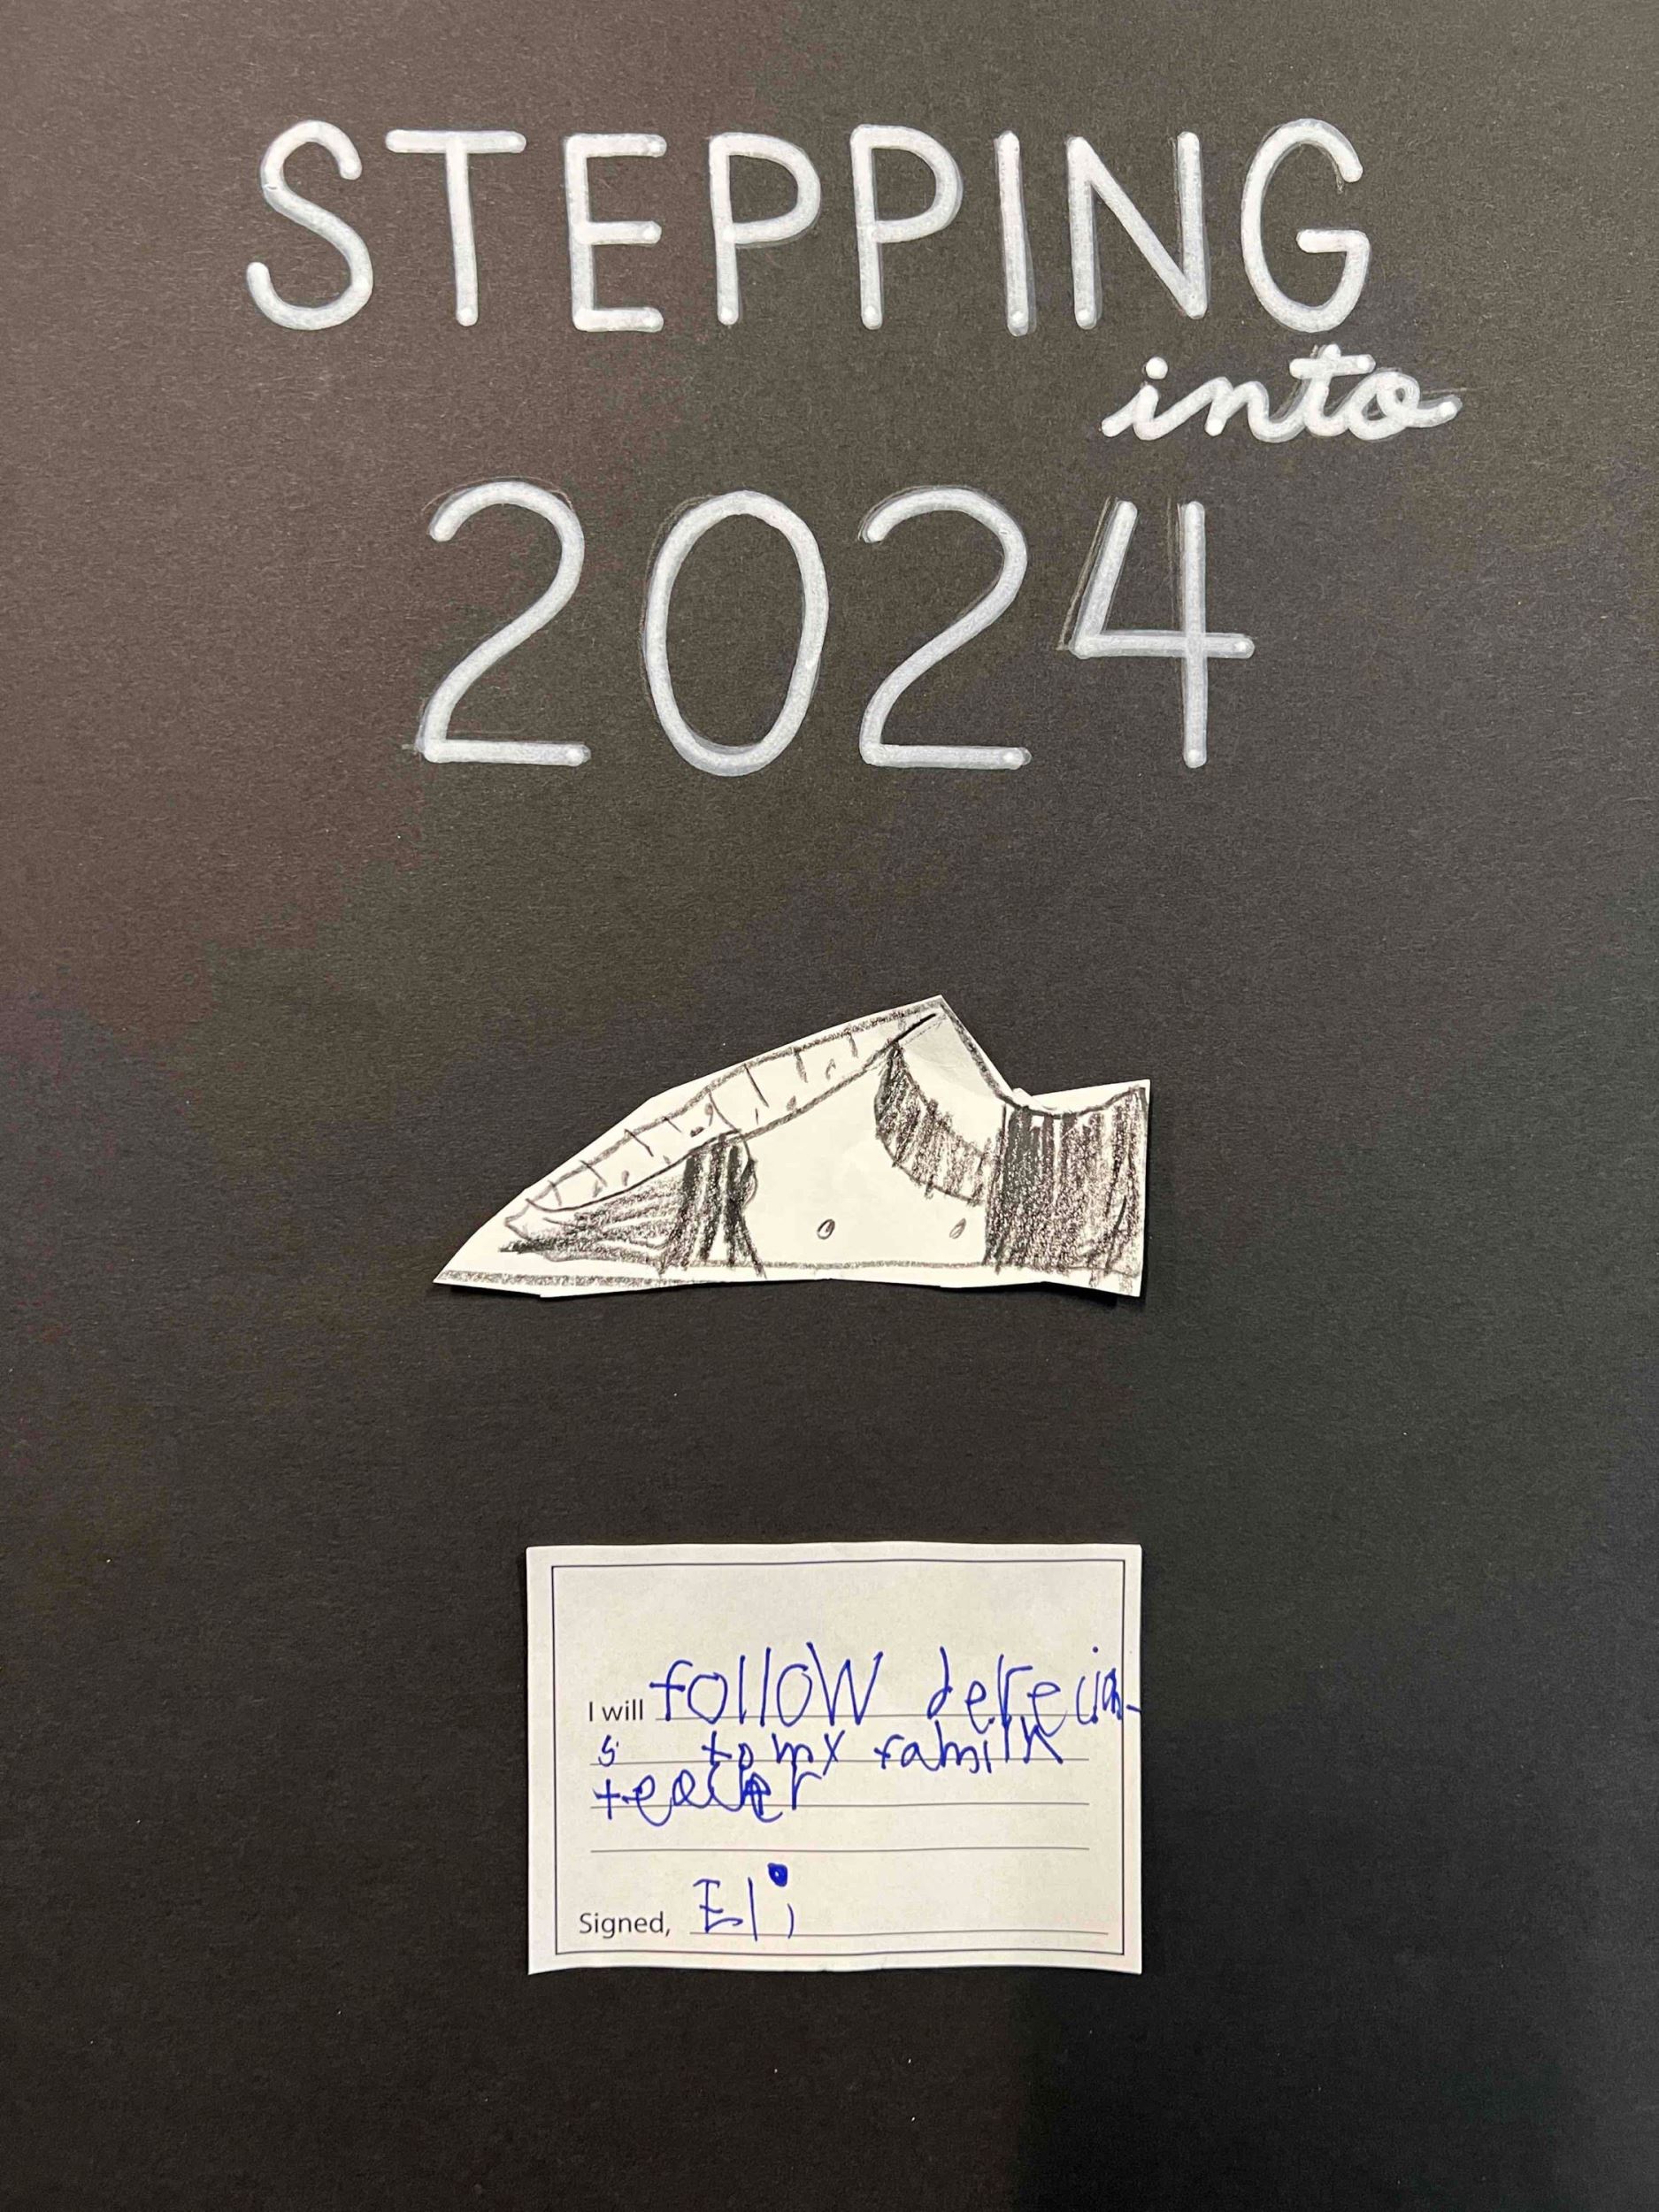 STEPPING
into
2024
I will follow derecion-
s to my familk
teacher
Signed, Eli